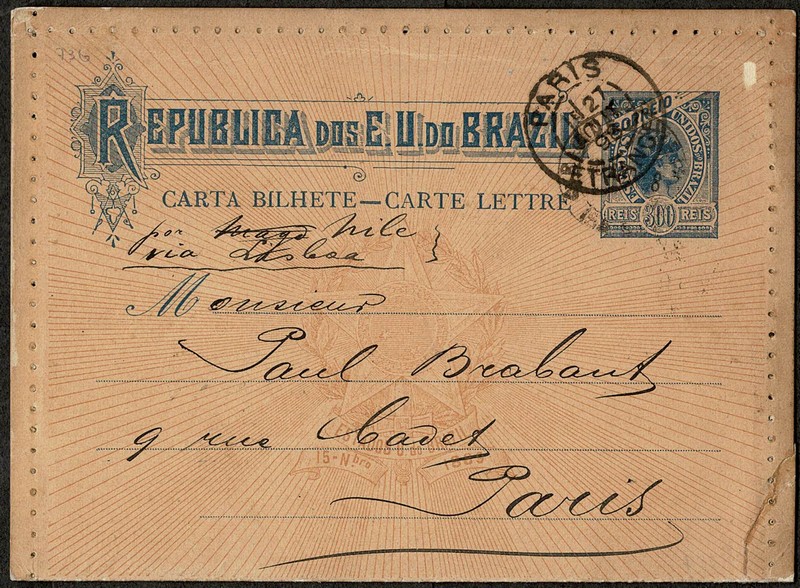 736
REPUBLICA DOS E. U. DO BRAZIL
CARTA BILHETE — CARTE LETTRE
PARIS
27
ETRANGER
CORREIO
UNIDOS DO BRAZIL
REIS 300 REIS
por Mago Nile
via Lisboa
Monsieur
Paul Brabant
9 rue Cadet
15-Nbro 1889
Paris